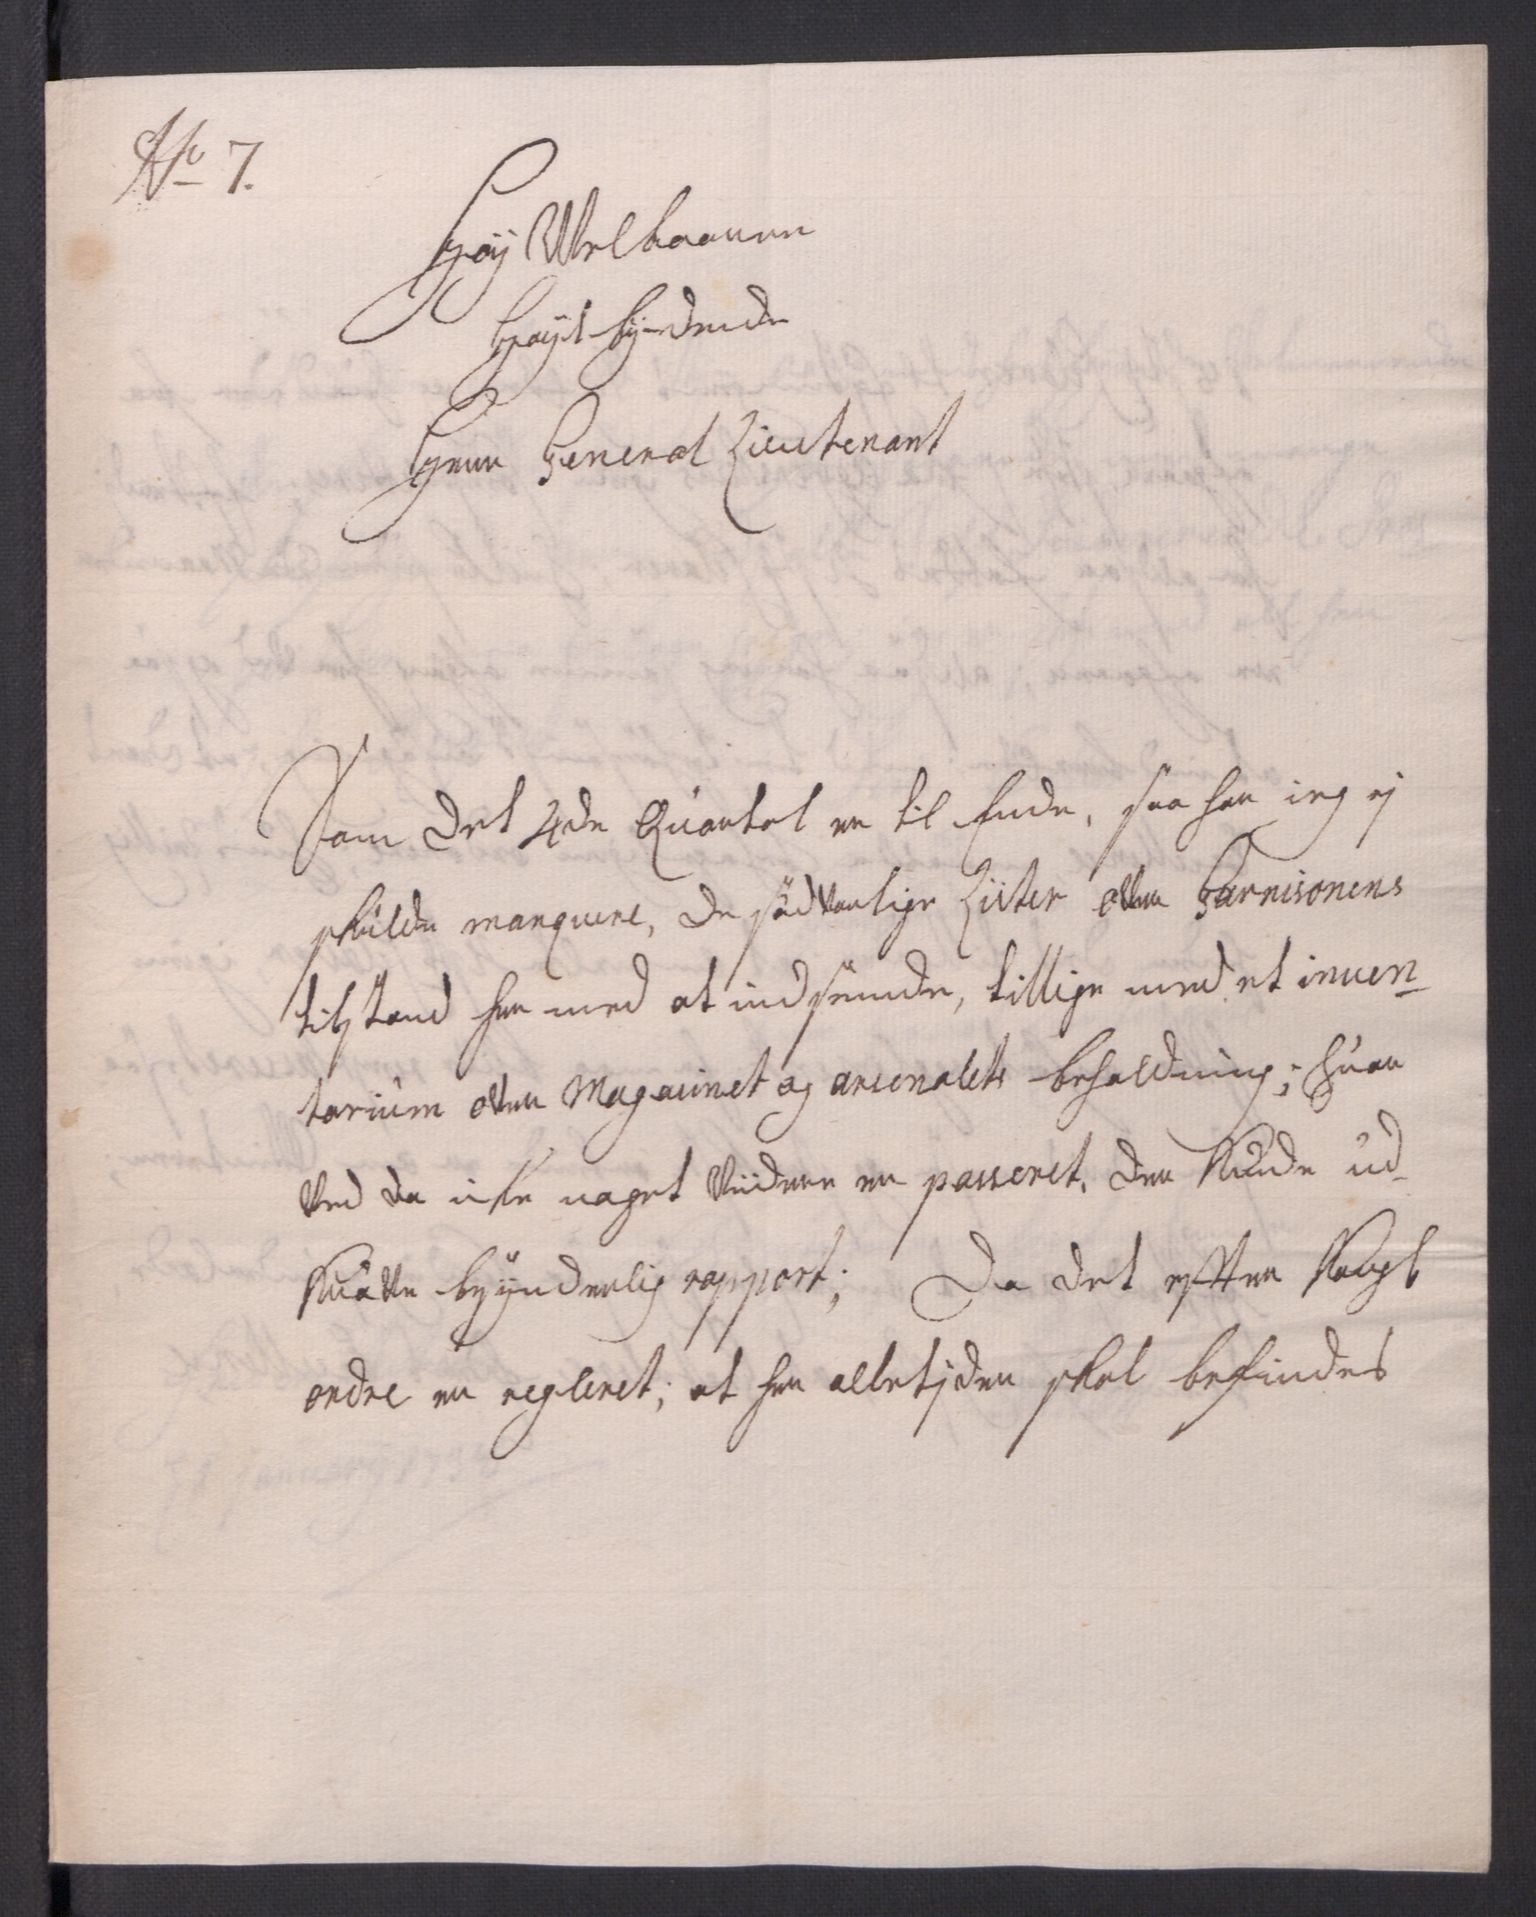 No 7.
Høy Welbaarne
Høyt bydende
Herr General Lieutenant
Som det 4de Quartal er til Ende, saa har ieg ej
skulde manquere, de sædvanlige Lister over Garnisonens
tilstand her med at indsende, tillige med et inven-
tarium over Magacinet og arsenalets beholdning; hvor
ved da icke noget viidere er passeret, der kunde ud-
kræve synderlig rapport; Da det efter Kongl
ordre er regleret; at her alletijder skal befindes